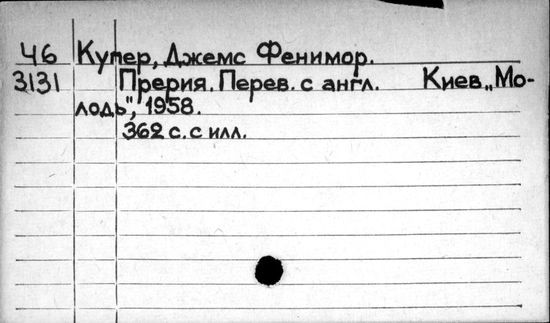 Ч6 Купер, Джемс Фенимор.
3131 Прерия. Перев. с англ. Киев „Мо-
лодь", 1958.
362 с. с илл.